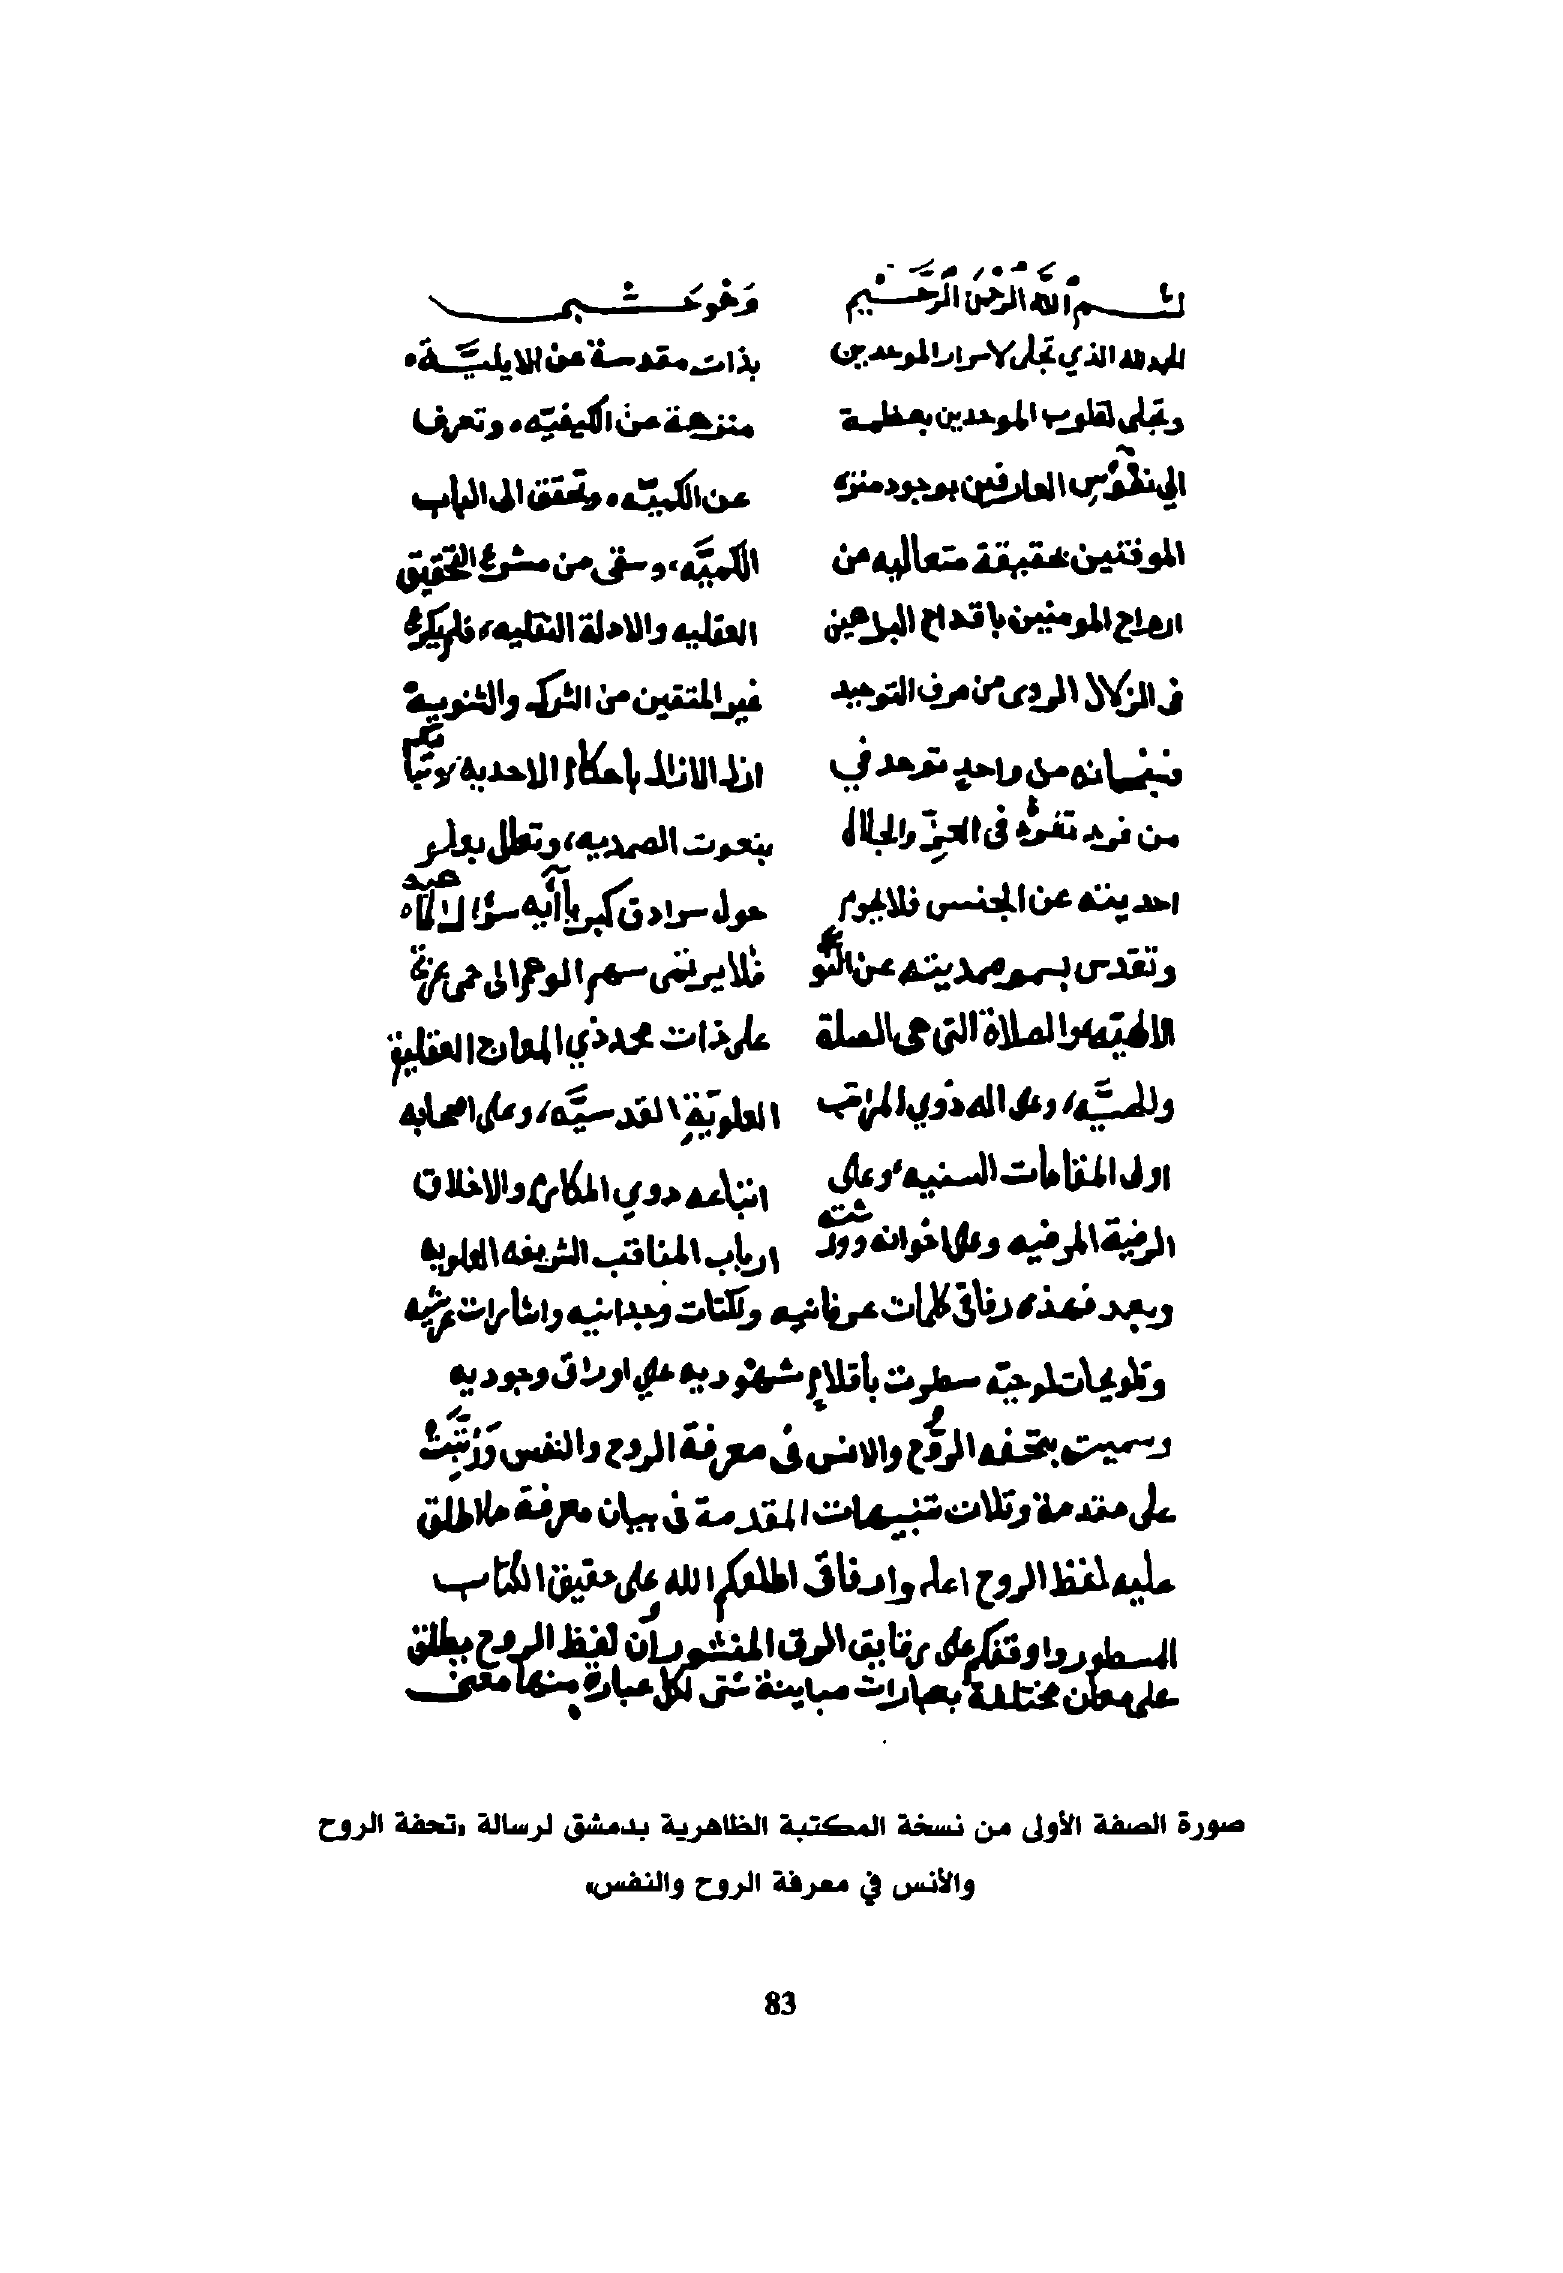 بسم الله الرحمن الرحيم وهو حسبي
الحمد لله الذي تجلى لاسرار الموحدين بذات مقدسة عن
وتجلى لقلوب الموحدين بعظمة منزهة عن الكيفيه، وتعرف
الي نفوس العارفين بوجود منزه عن الكميه، وتحقق الى الباب
الموقنين بحقيقة متعاليه من الكميه، وسقى من مشرع التحقيق
ارواح المومنين باقداح البراهين العقليه والادلة النقليه، فلم يكرع
في الزلال الروى من صرف التوحيد غير المتقين من الشرك والثنوية
فسبحانه من واحد توحد في ازل الازال باحكام الاحديه
من فرد تفرد في العز والجلال بنعوت الصمديه،
احديته عن الجنس فلا يحوم حول سرادق كبريائه سؤال
وتقدس بسمو صمديته عن فلا يرتقى سهم الوهم الى حمى عزته
الالهيه، والصلاة التي هي الصلة على ذات محمد ذي المعارج العقلية
والحسيه، وعلى اله ذوي المراتب العلوية القدسيه، وعلى اصحابه
اولى المقامات السنيه، وعلى اتباعه ذوي المكارم والاخلاق
الرضية المرضيه وعلى اخوانه وورثته ارباب المناقب الشريفه العلويه
وبعد فهذه رفاقي كلمات عرفانيه ونكتات وجدانيه واشارات عرشيه
وتلويحات لوحيه سطرت بأقلام شهوديه علي اوراق وجوديه
وسميت بتحفه الروح والانس في معرفة الروح والنفس ورتبت
على مقدمة وثلاث تنبيهات المقدمة في بيان معرفة ما اطلق
عليه لفظ الروح اعلموا رفاقى اطلعكم الله على حقيق الكتاب
المسطور واوقفكم على رقايق الرق المنشور أن لفظ الروح يطلق
على معان مختلفة بعبارات مباينة شتى لكل عبارة منها معنى
صورة الصفة الأولى من نسخة المكتبة الظاهرية بدمشق لرسالة «تحفة الروح
والأنس في معرفة الروح والنفس»
83